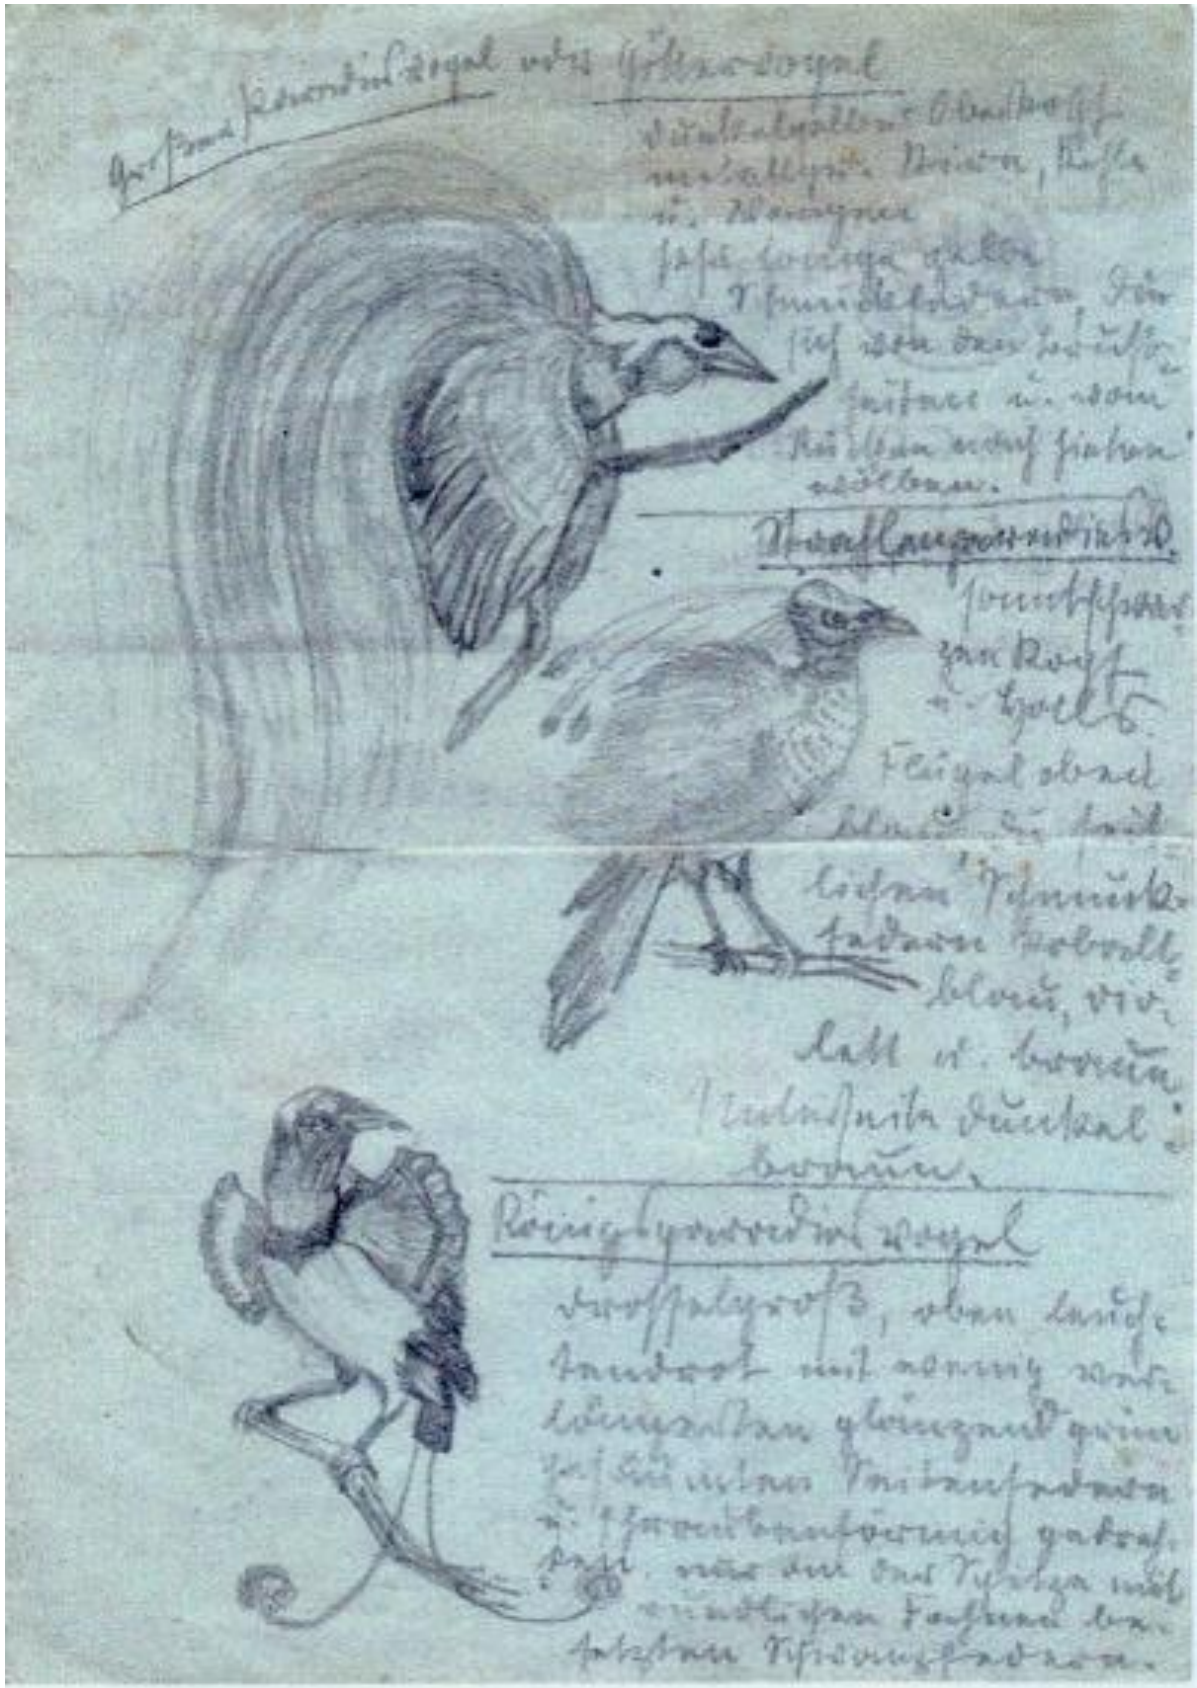 Großer Paradiesvogel oder Göttervogel
dunkelgelber Oberkopf
metallgr. Stirn, Kehle
u. Wangen
sehr lange gelbe
Schmuckfedern, die
sich von den Brust-
seiten u. vom
Rücken nach hinten
wölben.
Strahlenparadiesv.
samtschwar-
zen Kopf
u. Hals
Flügel oben
blau, die seit
lichen Schmuck-
federn kobalt-
blau, vio-
lett u. braun
Unterseite dunkel-
braun.
Königsparadiesvogel
drosselgroß, oben leuch-
tendrot mit wenig ver-
längerten glänzend grün
gesäumten Seitenfedern
u. schraubenförmig gedreh-
ten, nur an der Spitze mit
rundlichen Fahnen be-
setzten Schwanzfedern.